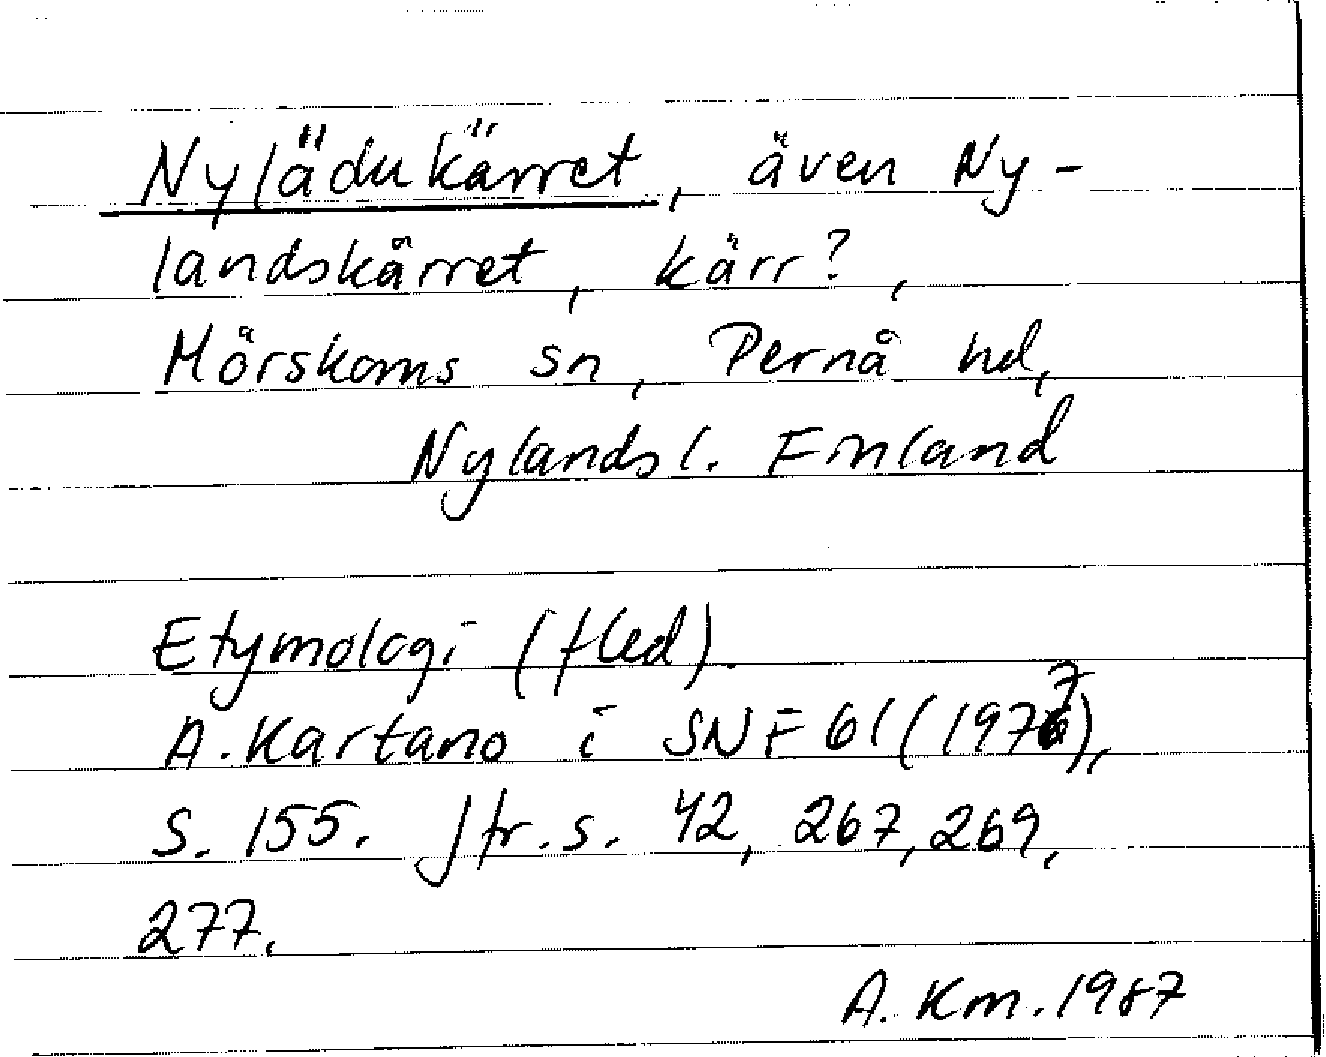 Nylädukärret, även Ny-
landskärret, kärr?,
Mörskoms sn, Pernå hd,
Nylands l. Finland
Etymologi (fled).
A. Kartano i SNF 61 (1977),
s. 155. Jfr. s. 42, 267, 269,
277.
A. Km. 1987